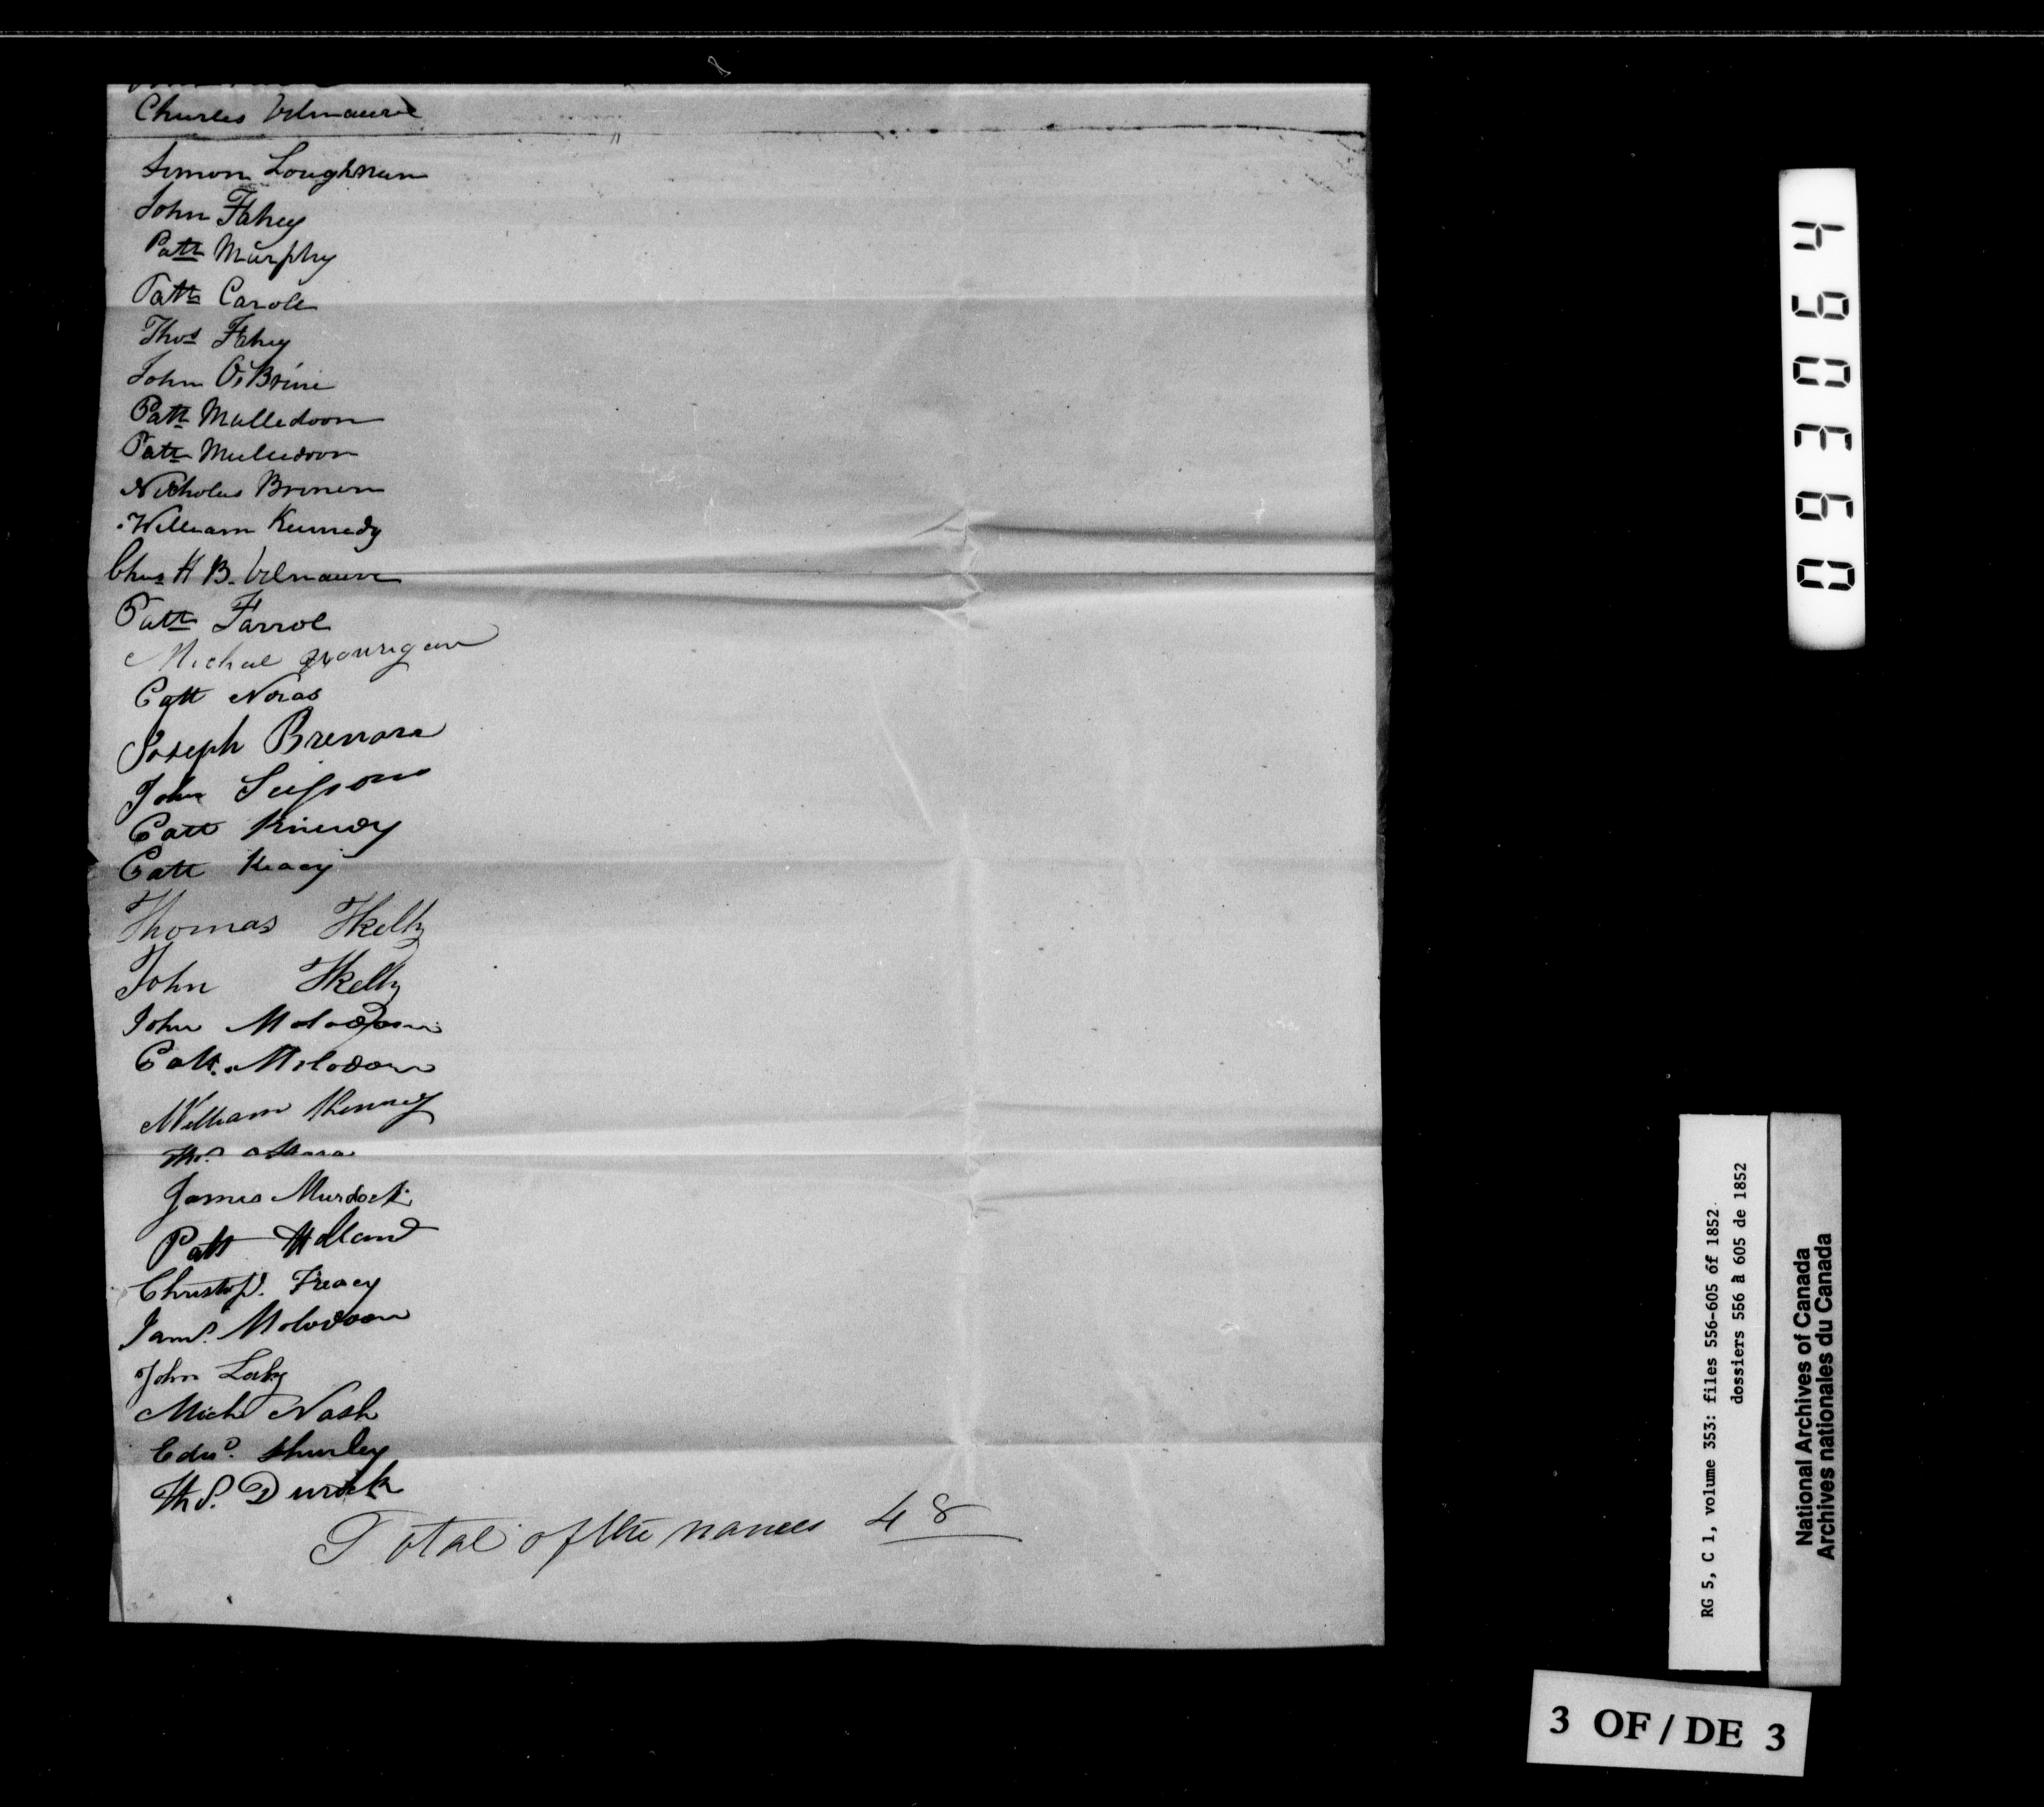 Charles Velmaure
Simon Loughnan
John Fahey
Patk Murphy
Patk Caroll
Thos Fahey
John O'Brine
Patk Mulledoon
Patk Muleedoon
Nicholas Brinen
William Kennedy
Chas H B. Velmaure
Patk Farrol
Michael
Patt Noras
Joseph Brenara
John Seissons
Patt
Patt Keacy
Thomas Skelly
John Skelly
John Molodoon
Patt. Molodoon
William Kenney
Ths. OMara
James Murdock
Patt Holland
Christop. Treacy
Jams. Molodoon
John Lahy
Michl Nash
Edwd. Shurley
Ths. Durack
Total of the names 48
093064
RG 5, C 1, volume 353: files 556-605 of 1852
dossiers 556 à 605 de 1852
National Archives of Canada
Archives nationales du Canada
3 OF / DE 3